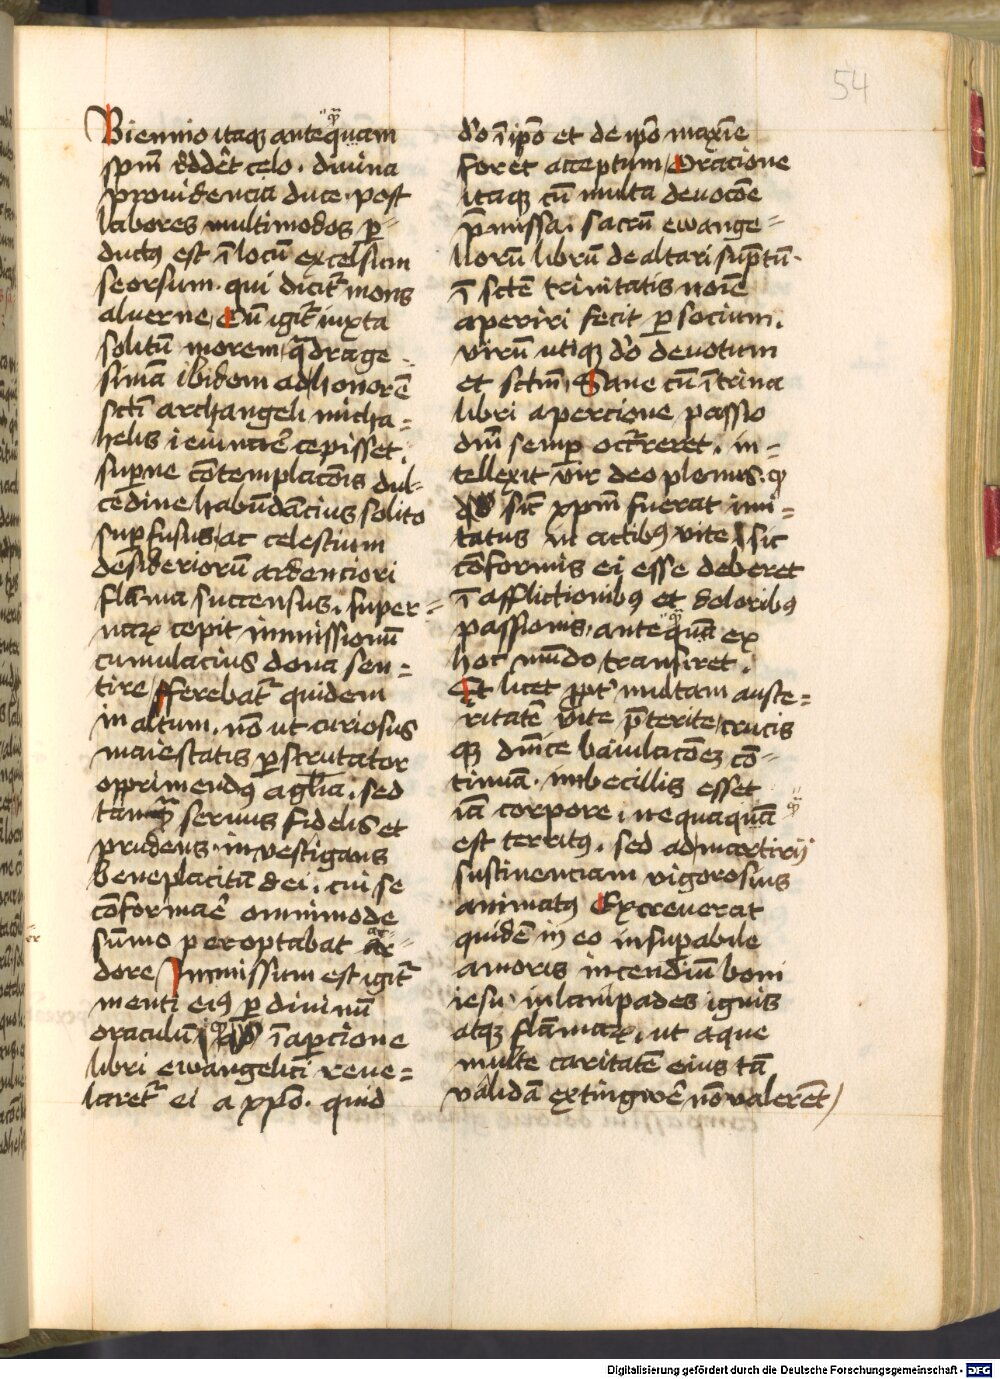 54
Biennio itaqꝫ anteq̃uam
sp̄m r̄ddēt celo · diuina
prouidencia duce · post
labores multimodos p̲-
ductꝰ est ī locū excelsum
seorsum · qui dicit᷑ mons
aluerne Cū igit᷑ iuxta
solitū morem q̄drage-
simā ibidem ad honorē
scti archangeli micha-
helis ieiuniaē cepisset ·
supne cōtemplacōis dul-
cedine habūdācius solito
supfusus ac celestium
desideriorū ardenciori
flāma succensus · super-
naꝝ cepit immissionū
cumulacius dona sen-
tire fferebat᷑ quidem
in altum · nō ut curiosus
maiestatis pscrutator
opprimendꝰ a gl̄ia · sed
tamq̄ seruus fidelis et
prudens · inuestigans
beneplacitū dei · cui se
cōformaē omnimode
sūmo peroptabat ar-
dore Immissum est igit᷑
menti eiꝰ p diuinū
oraculū ꝙ ī apcione
libri ewangelici reue-
laret᷑ ei a xp̄o · quid
d̄o ī ip̄o et de ip̄o maxīe
foret acceptum Oracione
itaqꝫ cū multa deuocōe
p̄missa · sacrū ewange-
liorū librū de altari sūptū ·
ī scte trinitatis noīe
aperiri fecit p socium ·
virū utiqꝫ d̄o deuotum
et sctm̄ Sane cū ī trina
libri apercione passio
dnī semp occ᷑reret · in-
tellexit vir deo plenus · ꝙ
sic̄ xp̄m fuerat imi-
tatus in actibꝰ vite sic
cōformis ei esse deberet
ī afflictionibꝰ et doloribꝰ
passionis · anteq̃uā ex
hoc mūdo transiret ·
Et licet ppt᷑ multam auste-
ritatē vite p̄terite crucis
qꝫ dnīce baiulacōeꝫ cō-
tinuā · imbecillis esset
iā corpore · nequaquā
est territꝰ · sed ad martirij
sustinenciam vigorosius
animatꝰ Excreuerat
quidē in eo insupabile
amoris incendiū boni
iesu · in lampades ignis
atqꝫ flāmaꝝ · ut aque
multe caritatē eius tā
validā extingwē nō valerēt
Digitalisierung gefördert durch die Deutsche Forschungsgemeinschaft - DFG